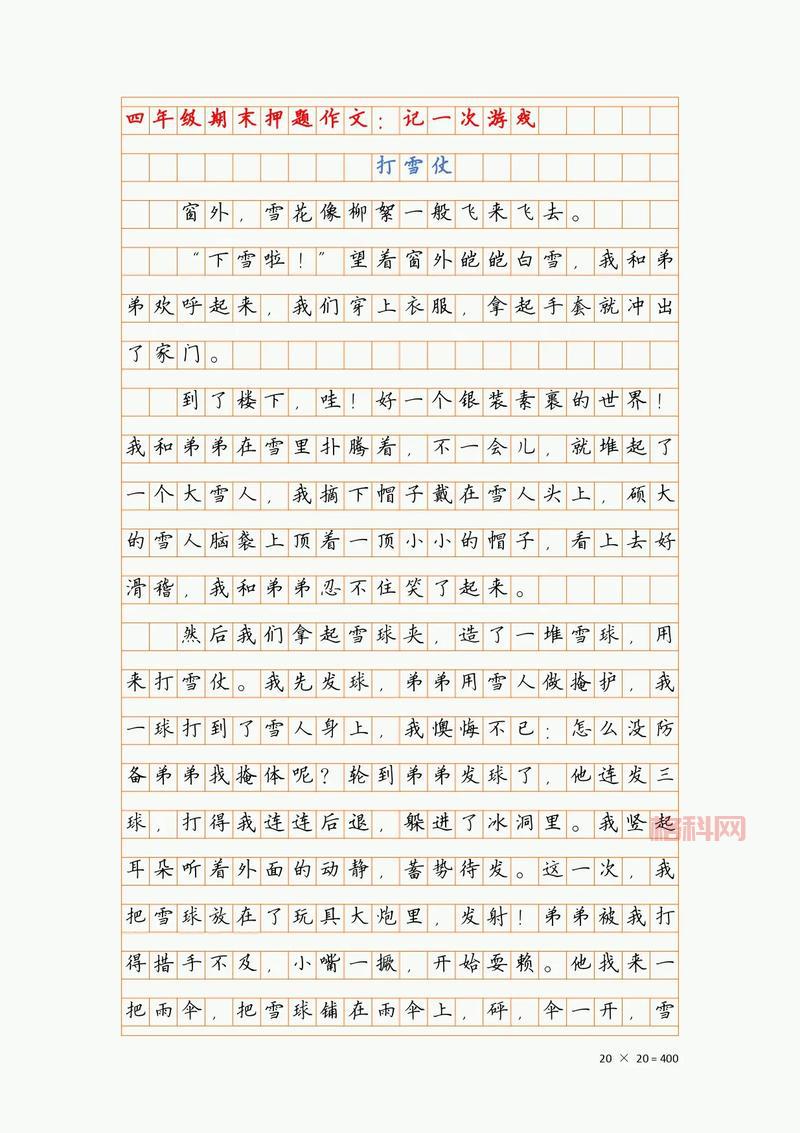 四年级期末押题作文：记一次游戏
打雪仗
窗外，雪花像柳絮一般飞来飞去。
“下雪啦！”望着窗外皑皑白雪，我和弟
弟欢呼起来，我们穿上衣服，拿起手套就冲出
了家门。
到了楼下，哇！好一个银装素裹的世界！
我和弟弟在雪里扑腾着，不一会儿，就堆起了
一个大雪人，我摘下帽子戴在雪人头上，硕大
的雪人脑袋上顶着一顶小小的帽子，看上去好
滑稽，我和弟弟忍不住笑了起来。
然后我们拿起雪球夹，造了一堆雪球，用
来打雪仗。我先发球，弟弟用雪人做掩护，我
一球打到了雪人身上，我懊悔不已：怎么没防
备弟弟找掩体呢？轮到弟弟发球了，他连发三
球，打得我连连后退，躲进了冰洞里。我竖起
耳朵听着外面的动静，蓄势待发。这一次，我
把雪球放在了玩具大炮里，发射！弟弟被我打
得措手不及，小嘴一撅，开始耍赖。他找来一
把雨伞，把雪球铺在雨伞上，砰，伞一开，雪
格科网
20 × 20 = 400